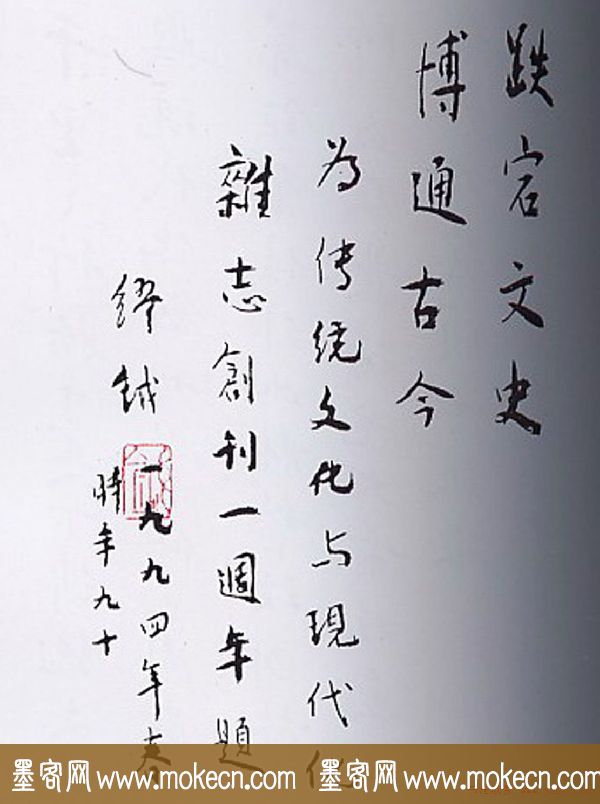 跌宕文史
博通古今
为传统文化与現代化
雜志創刊一週年題
缪钺一九九四年春
時年九十
墨客网 www.mokecn.com 墨客网 www.mokecn.com